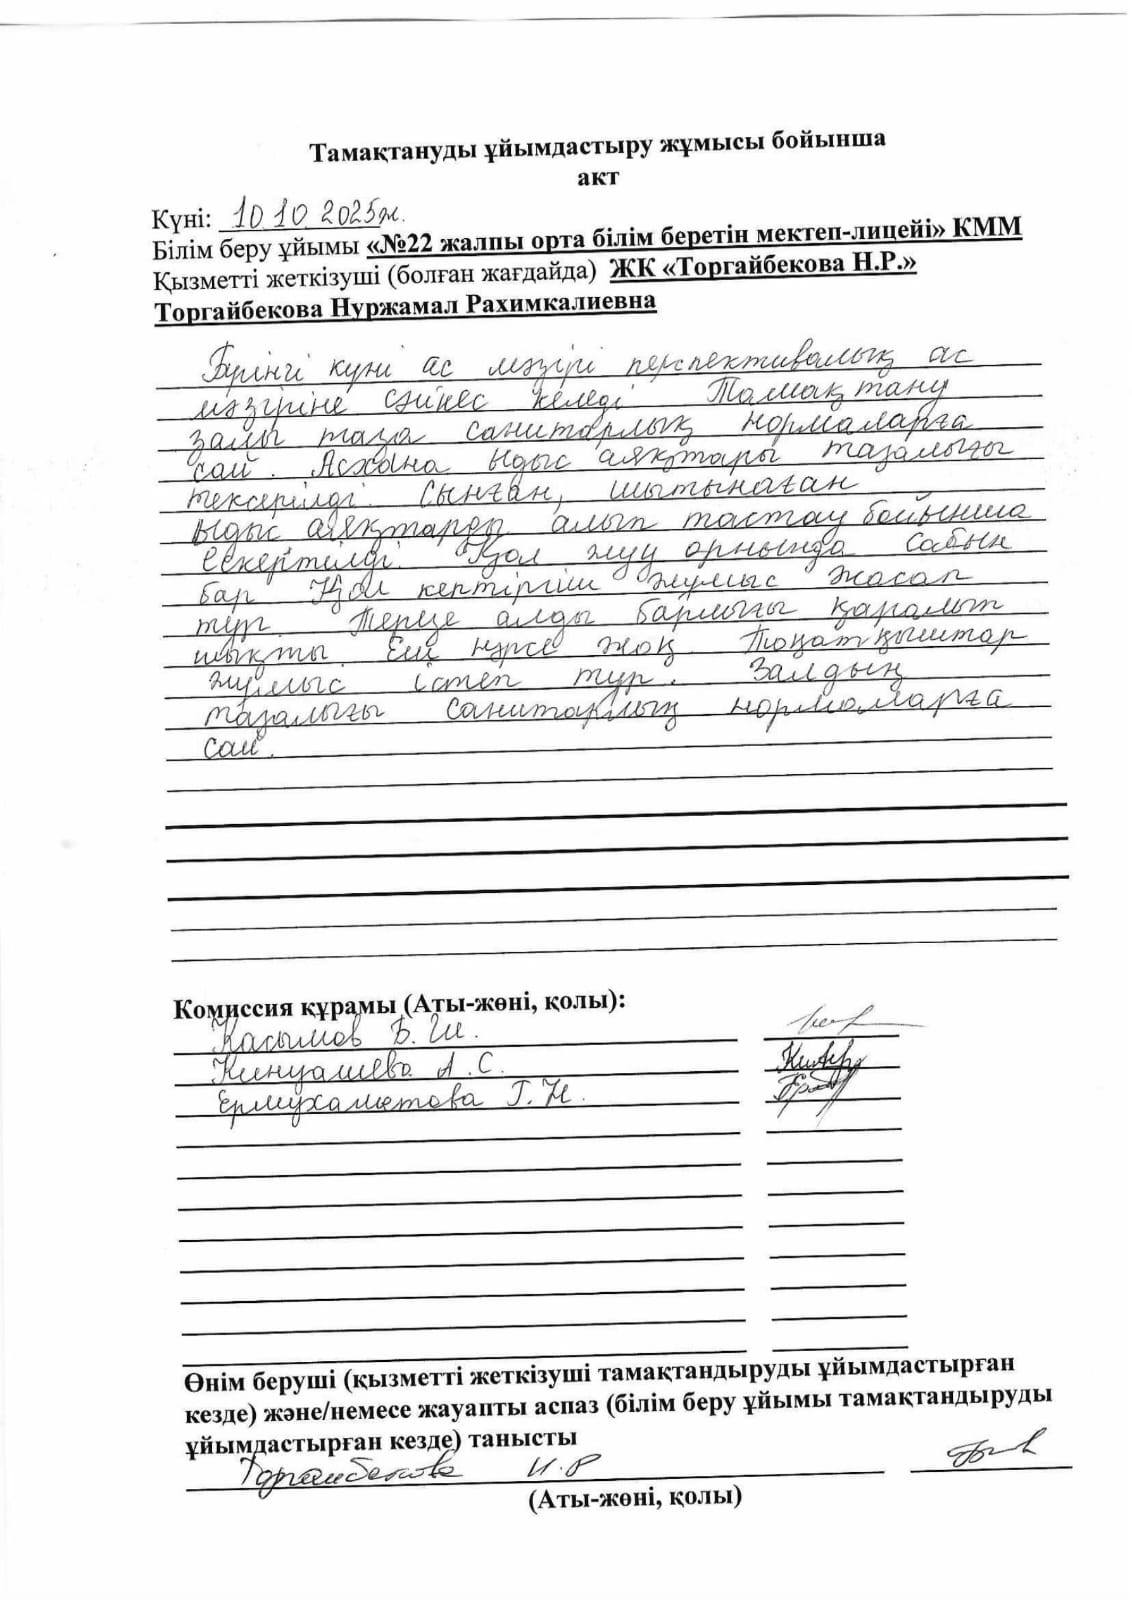 Тамақтануды ұйымдастыру жұмысы бойынша
акт
Күні: 10.10.2025ж.
Білім беру ұйымы «№22 жалпы орта білім беретін мектеп-лицейі» КММ
Қызметті жеткізуші (болған жағдайда) ЖК «Торгайбекова Н.Р.»
Торгайбекова Нуржамал Рахимкалиевна
Бүгінгі күні ас мәзірі перспективалық ас
мәзіріне сәйкес келеді Тамақтану
залы таза санитарлық нормаларға
сай. Асхана ыдыс аяқтары тазалығы
тексерілді. Сынған, шытынаған
ыдыс аяқтарды алып тастау бойынша
ескертілді. Қол жуу орнында сабын
бар Қол кептіргіш жұмыс жасап
тұр. Терезе алды барлығы қаралып
шықты. Еш нәрсе жоқ. Тоңатқыштар
жұмыс істеп тұр. Залдың
тазалығы санитарлық нормаларға
сай.
Комиссия құрамы (Аты-жөні, қолы):
Касымов Б.Ш.
Кинуашева А.С.
Ермухаметова Г.Н.
Өнім беруші (қызметті жеткізуші тамақтандыруды ұйымдастырған
кезде) және/немесе жауапты аспаз (білім беру ұйымы тамақтандыруды
ұйымдастырған кезде) танысты
Торгайбекова Н.Р
(Аты-жөні, қолы)